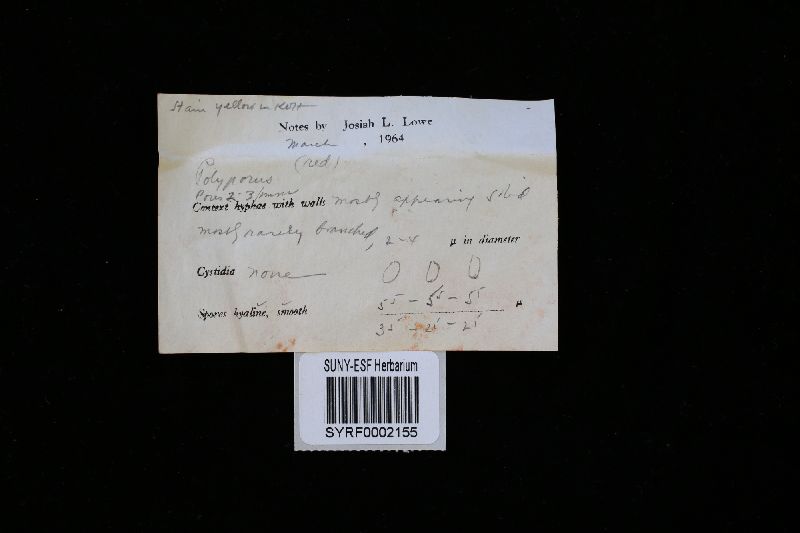 Stain yellow in KOH
Notes by Josiah L. Lowe
March , 1964
(red)
Polyporus
Pores 2-3/mm
Context hyphae with walls mostly appearing solid
mostly rarely branched, 2-4 µ in diameter
Cystidia none
Spores hyaline, smooth µ
SUNY-ESF Herbarium
SYRF0002155